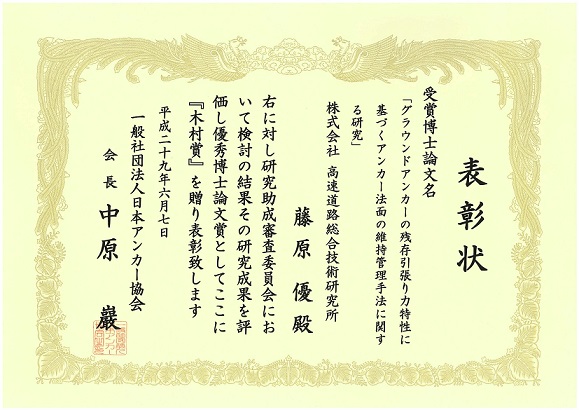 表彰状
受賞博士論文名
「グラウンドアンカーの残存引張り力特性に
基づくアンカー法面の維持管理手法に関す
る研究」
株式会社 高速道路総合技術研究所
藤原 優 殿
右に対し研究助成審査委員会にお
いて検討の結果その研究成果を評
価し優秀博士論文賞としてここに
『木村賞』を贈り表彰致します
平成二十九年六月七日
一般社団法人日本アンカー協会
会長 中原 巖